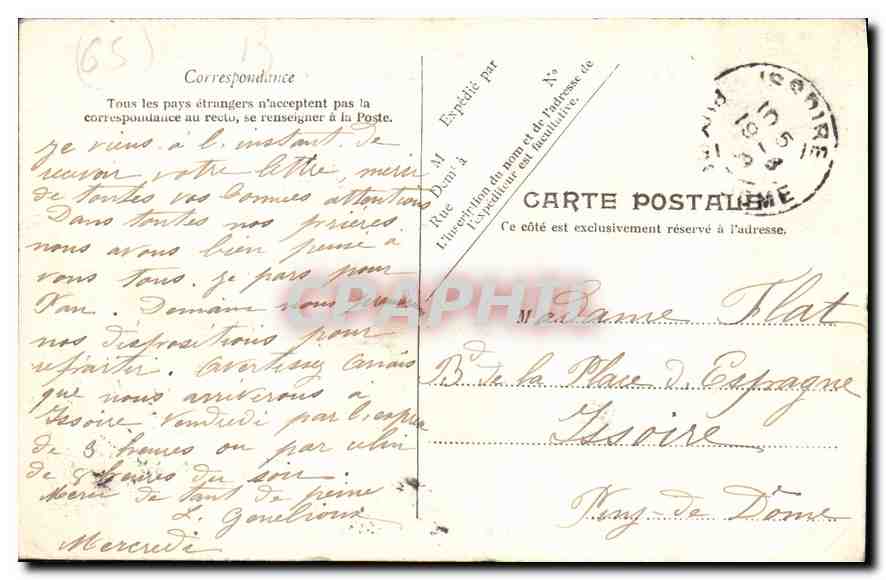 (65)
Correspondance
Tous les pays étrangers n'acceptent pas la
correspondance au recto, se renseigner à la Poste.
je viens à l'instant de
recevoir votre lettre, merci
de toutes vos bonnes attentions
Dans toutes nos prières
nous avons bien pensé à
vous tous. je pars pour
. Demain nous
nos dispositions pour
repartir. avertissez
que nous arriverons à
Issoire Vendredi par l'express
de 3 heures ou par celui
de 8 heures du soir.
Merci de tant de peine
L.
Mercredi
Expédié par
M
Demt à
Rue
No
L'inscription du nom et de l'adresse de
l'expéditeur est facultative.
CARTE POSTALE
Ce côté est exclusivement réservé à l'adresse.
ISSOIRE
PUY-DE-DOME
CPAPHIL
Madame Flat
Bd de la Place d'Espagne
Issoire
Puy-de-Dôme